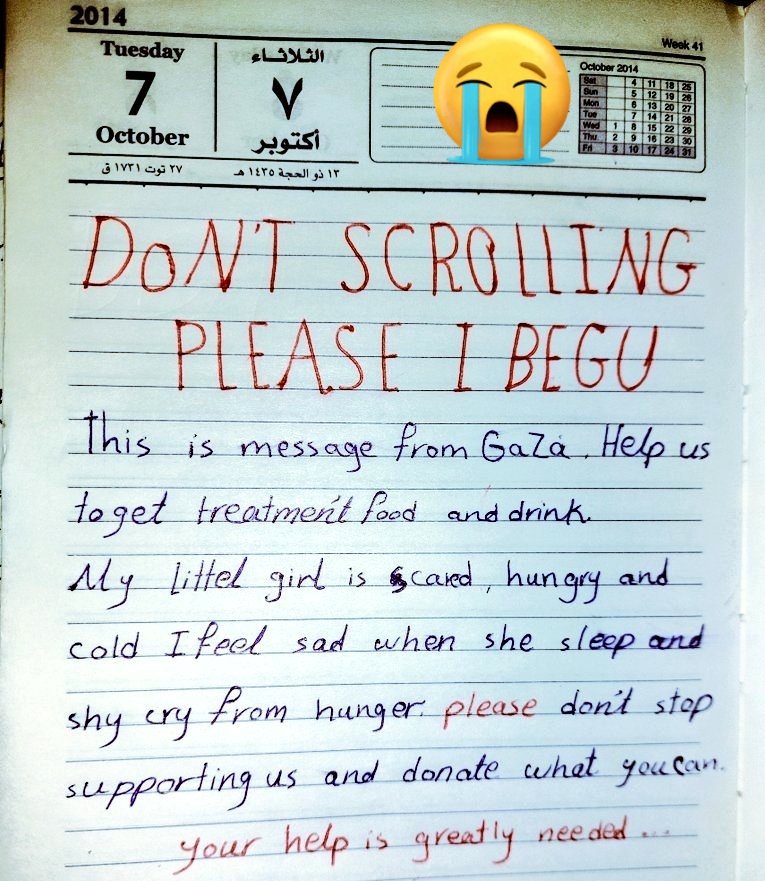 2014
Week 41
Tuesday
7
October
الثلاثاء
٧
أكتوبر
٢٧ توت ١٧٣١ ق
١٣ ذو الحجة ١٤٣٥ هـ
October 2014
Sat 4 11 18 25
Sun 5 12 19 26
Mon 6 13 20 27
Tue 7 14 21 28
Wed 1 8 15 22 29
Thu 2 9 16 23 30
Fri 3 10 17 24 31
DoN'T SCROLLING
PLEASE I BEGU
This is message from GaZa. Help us
to get treatment food and drink.
My Littel girl is scared, hungry and
cold I feel sad when she sleep and
shy cry from hunger. please don't stop
supporting us and donate what you can.
your help is greatly needed...